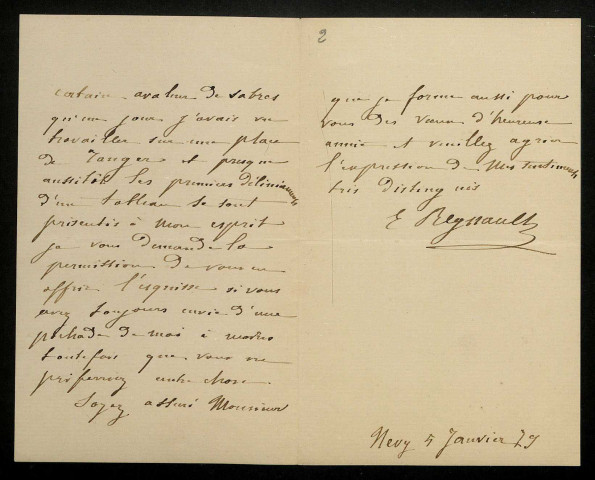 certain avaleur de sabres
qu'un jour j'avais vu
travailler sur une place
de Tanger et presque
aussitôt les premiers délinéaments
d'un tableau se sont
présentés à mon esprit
je vous demande la
permission de vous en
offrir l'esquisse si vous
avez toujours envie d'une
pochade de moi à moins
toutefois que vous ne
préferiez autre chose.
Soyez assuré Monsieur
2
que je forme aussi pour
vous des vœux d'heureuse
année et veuillez agréer
l'expression de mes sentiments
très distingués
E Regnault
5 Janvier 79